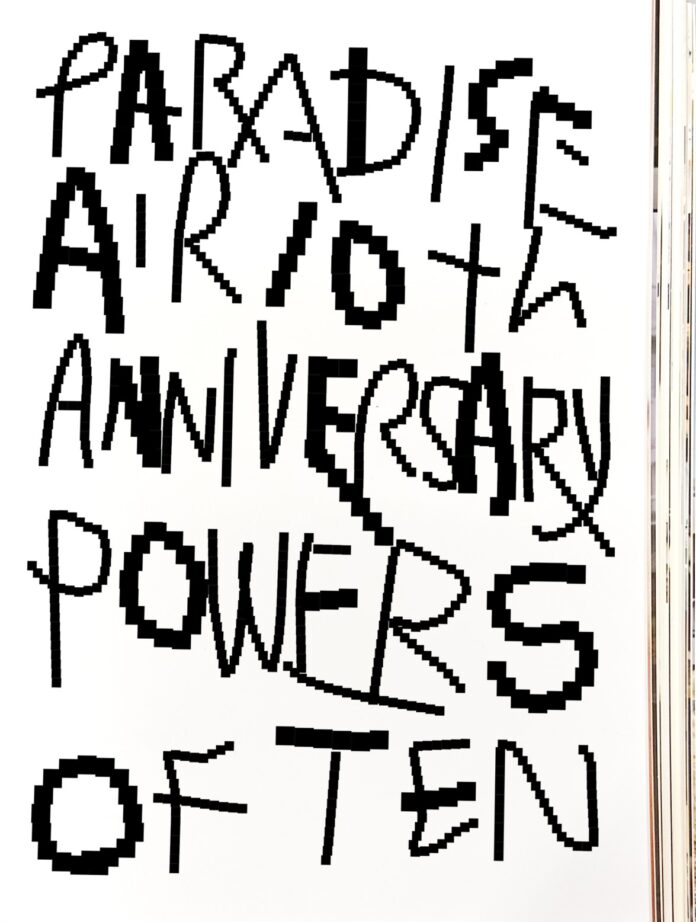 PARADISE
AIR 10th
ANNIVERSARY
POWERS
OF TEN